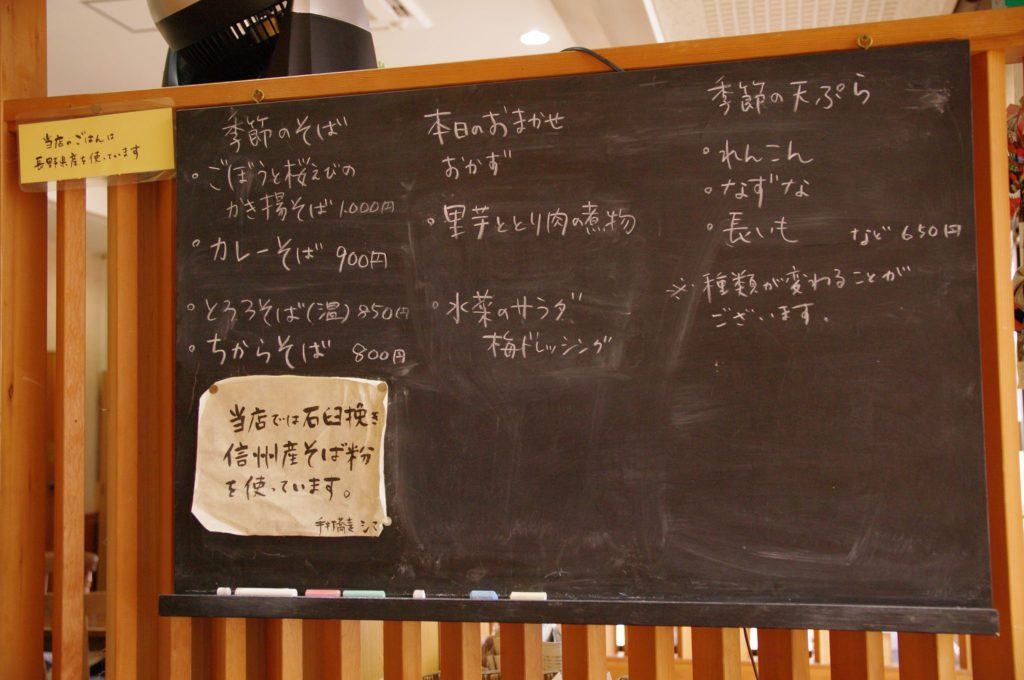 当店のごはんは
長野県産を使っています
季節のそば
・ごぼうと桜えびの
かき揚そば 1,000円
・カレーそば 900円
・とろろそば(温) 850円
・ちからそば 800円
当店では石臼挽き
信州産そば粉
を使っています。
本日のおまかせ
おかず
・里芋ととり肉の煮物
・水菜のサラダ
梅ドレッシング
季節の天ぷら
・れんこん
・なずな
・長いも など 650円
※種類が変わることが
ございます。